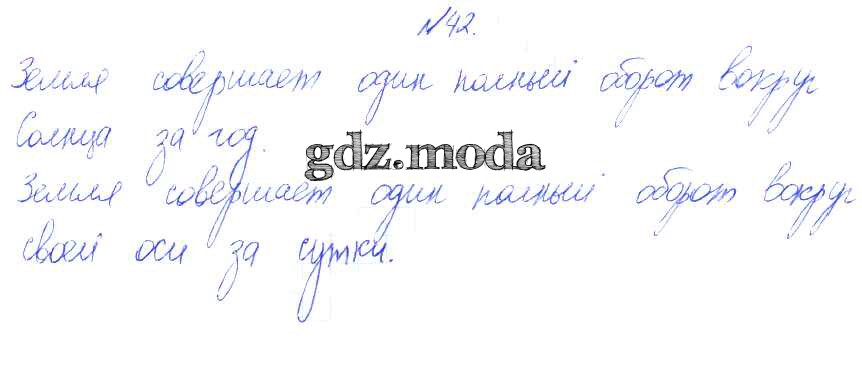 №42.
Земля совершает один полный оборот вокруг
Солнца за год.
gdz.moda
Земля совершает один полный оборот вокруг
своей оси за сутки.